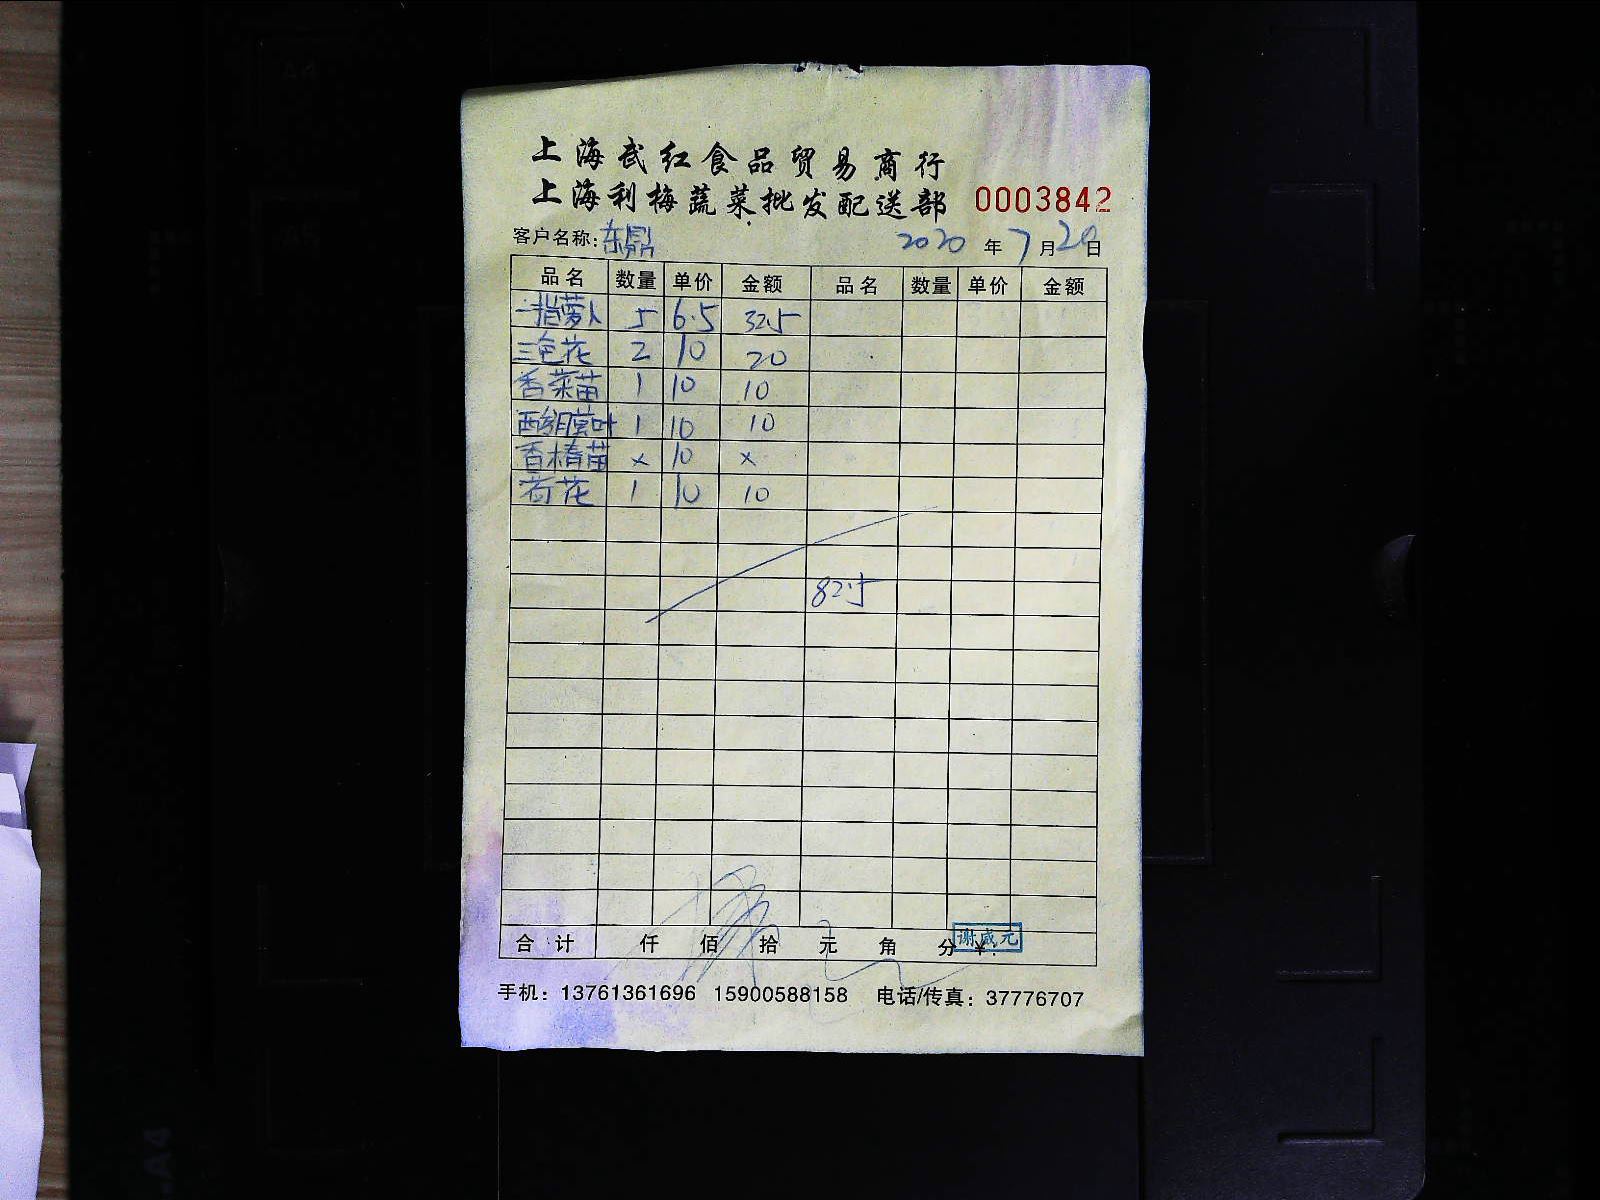 上海武红食品贸易商行
上海利梅蔬菜批发配送部 0003842
客户名称:东鼎 2020 年 7 月 20 日
品名 数量 单价 金额 品名 数量 单价 金额
一指萝卜 5 6.5 32.5
三色花 2 10 20
香菜苗 1 10 10
酸膜叶 1 10 10
香椿苗 × 10 ×
荷花 1 10 10
82.5
合计 仟 佰 拾 元 角 分 ¥:
谢咸元
手机: 13761361696 15900588158 电话/传真: 37776707